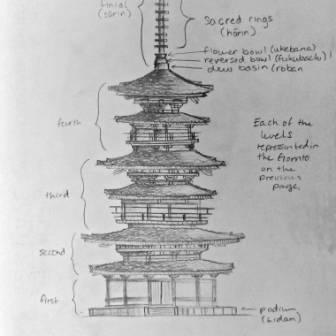 finial
(sōrin)
Sacred rings
(hōrin)
flower bowl (ukebana)
reversed bowl (fukubachi)
dew basin (roban
fourth
Each of the
levels
represented in
the
on the
previous
page
third
second
first
podium
(kidan)